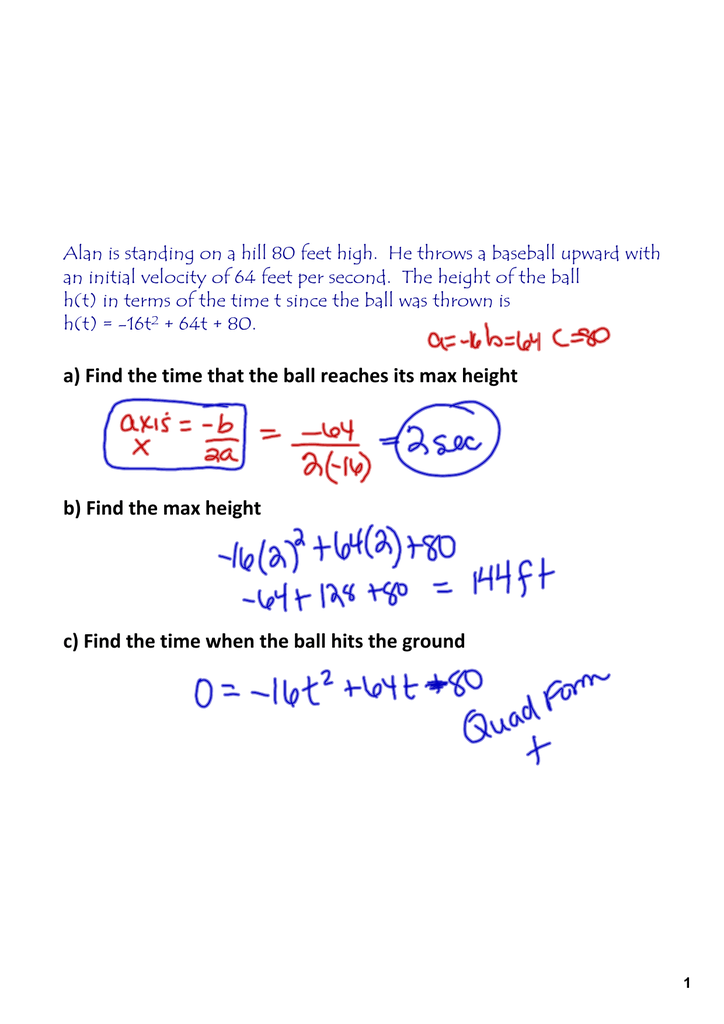 Alan is standing on a hill 80 feet high. He throws a baseball upward with
an initial velocity of 64 feet per second. The height of the ball
h(t) in terms of the time t since the ball was thrown is
h(t) = -16t² + 64t + 80.
a=-16 b=64 c=80
a) Find the time that the ball reaches its max height
axis = -b/2a = -64/2(-16) = 2 sec
x
b) Find the max height
-16(2)² + 64(2) + 80
-64 + 128 + 80 = 144 ft
c) Find the time when the ball hits the ground
0 = -16t² + 64t + 80
Quad Form
+
1